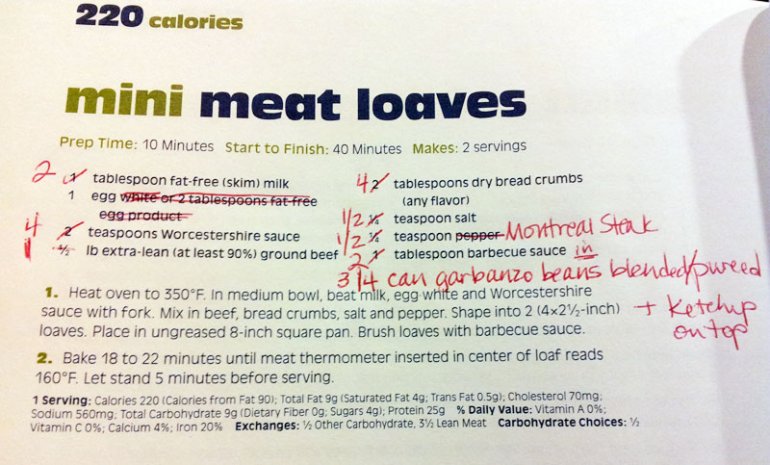 220 calories
mini meat loaves
Prep Time: 10 Minutes Start to Finish: 40 Minutes Makes: 2 servings
2 1 tablespoon fat-free (skim) milk
1 egg white or 2 tablespoons fat-free
egg product
4 2 teaspoons Worcestershire sauce
1 ½ lb extra-lean (at least 90%) ground beef
4 2 tablespoons dry bread crumbs
(any flavor)
1/2 ¼ teaspoon salt
1/2 ¼ teaspoon pepper Montreal Steak
2 1 tablespoon barbecue sauce in
3/4 can garbanzo beans blended/pureed
+ Ketchup
on top
1. Heat oven to 350°F. In medium bowl, beat milk, egg white and Worcestershire
sauce with fork. Mix in beef, bread crumbs, salt and pepper. Shape into 2 (4x2½-inch)
loaves. Place in ungreased 8-inch square pan. Brush loaves with barbecue sauce.
2. Bake 18 to 22 minutes until meat thermometer inserted in center of loaf reads
160°F. Let stand 5 minutes before serving.
1 Serving: Calories 220 (Calories from Fat 90); Total Fat 9g (Saturated Fat 4g; Trans Fat 0.5g); Cholesterol 70mg;
Sodium 560mg; Total Carbohydrate 9g (Dietary Fiber 0g; Sugars 4g); Protein 25g % Daily Value: Vitamin A 0%;
Vitamin C 0%; Calcium 4%; Iron 20% Exchanges: ½ Other Carbohydrate, 3½ Lean Meat Carbohydrate Choices: ½